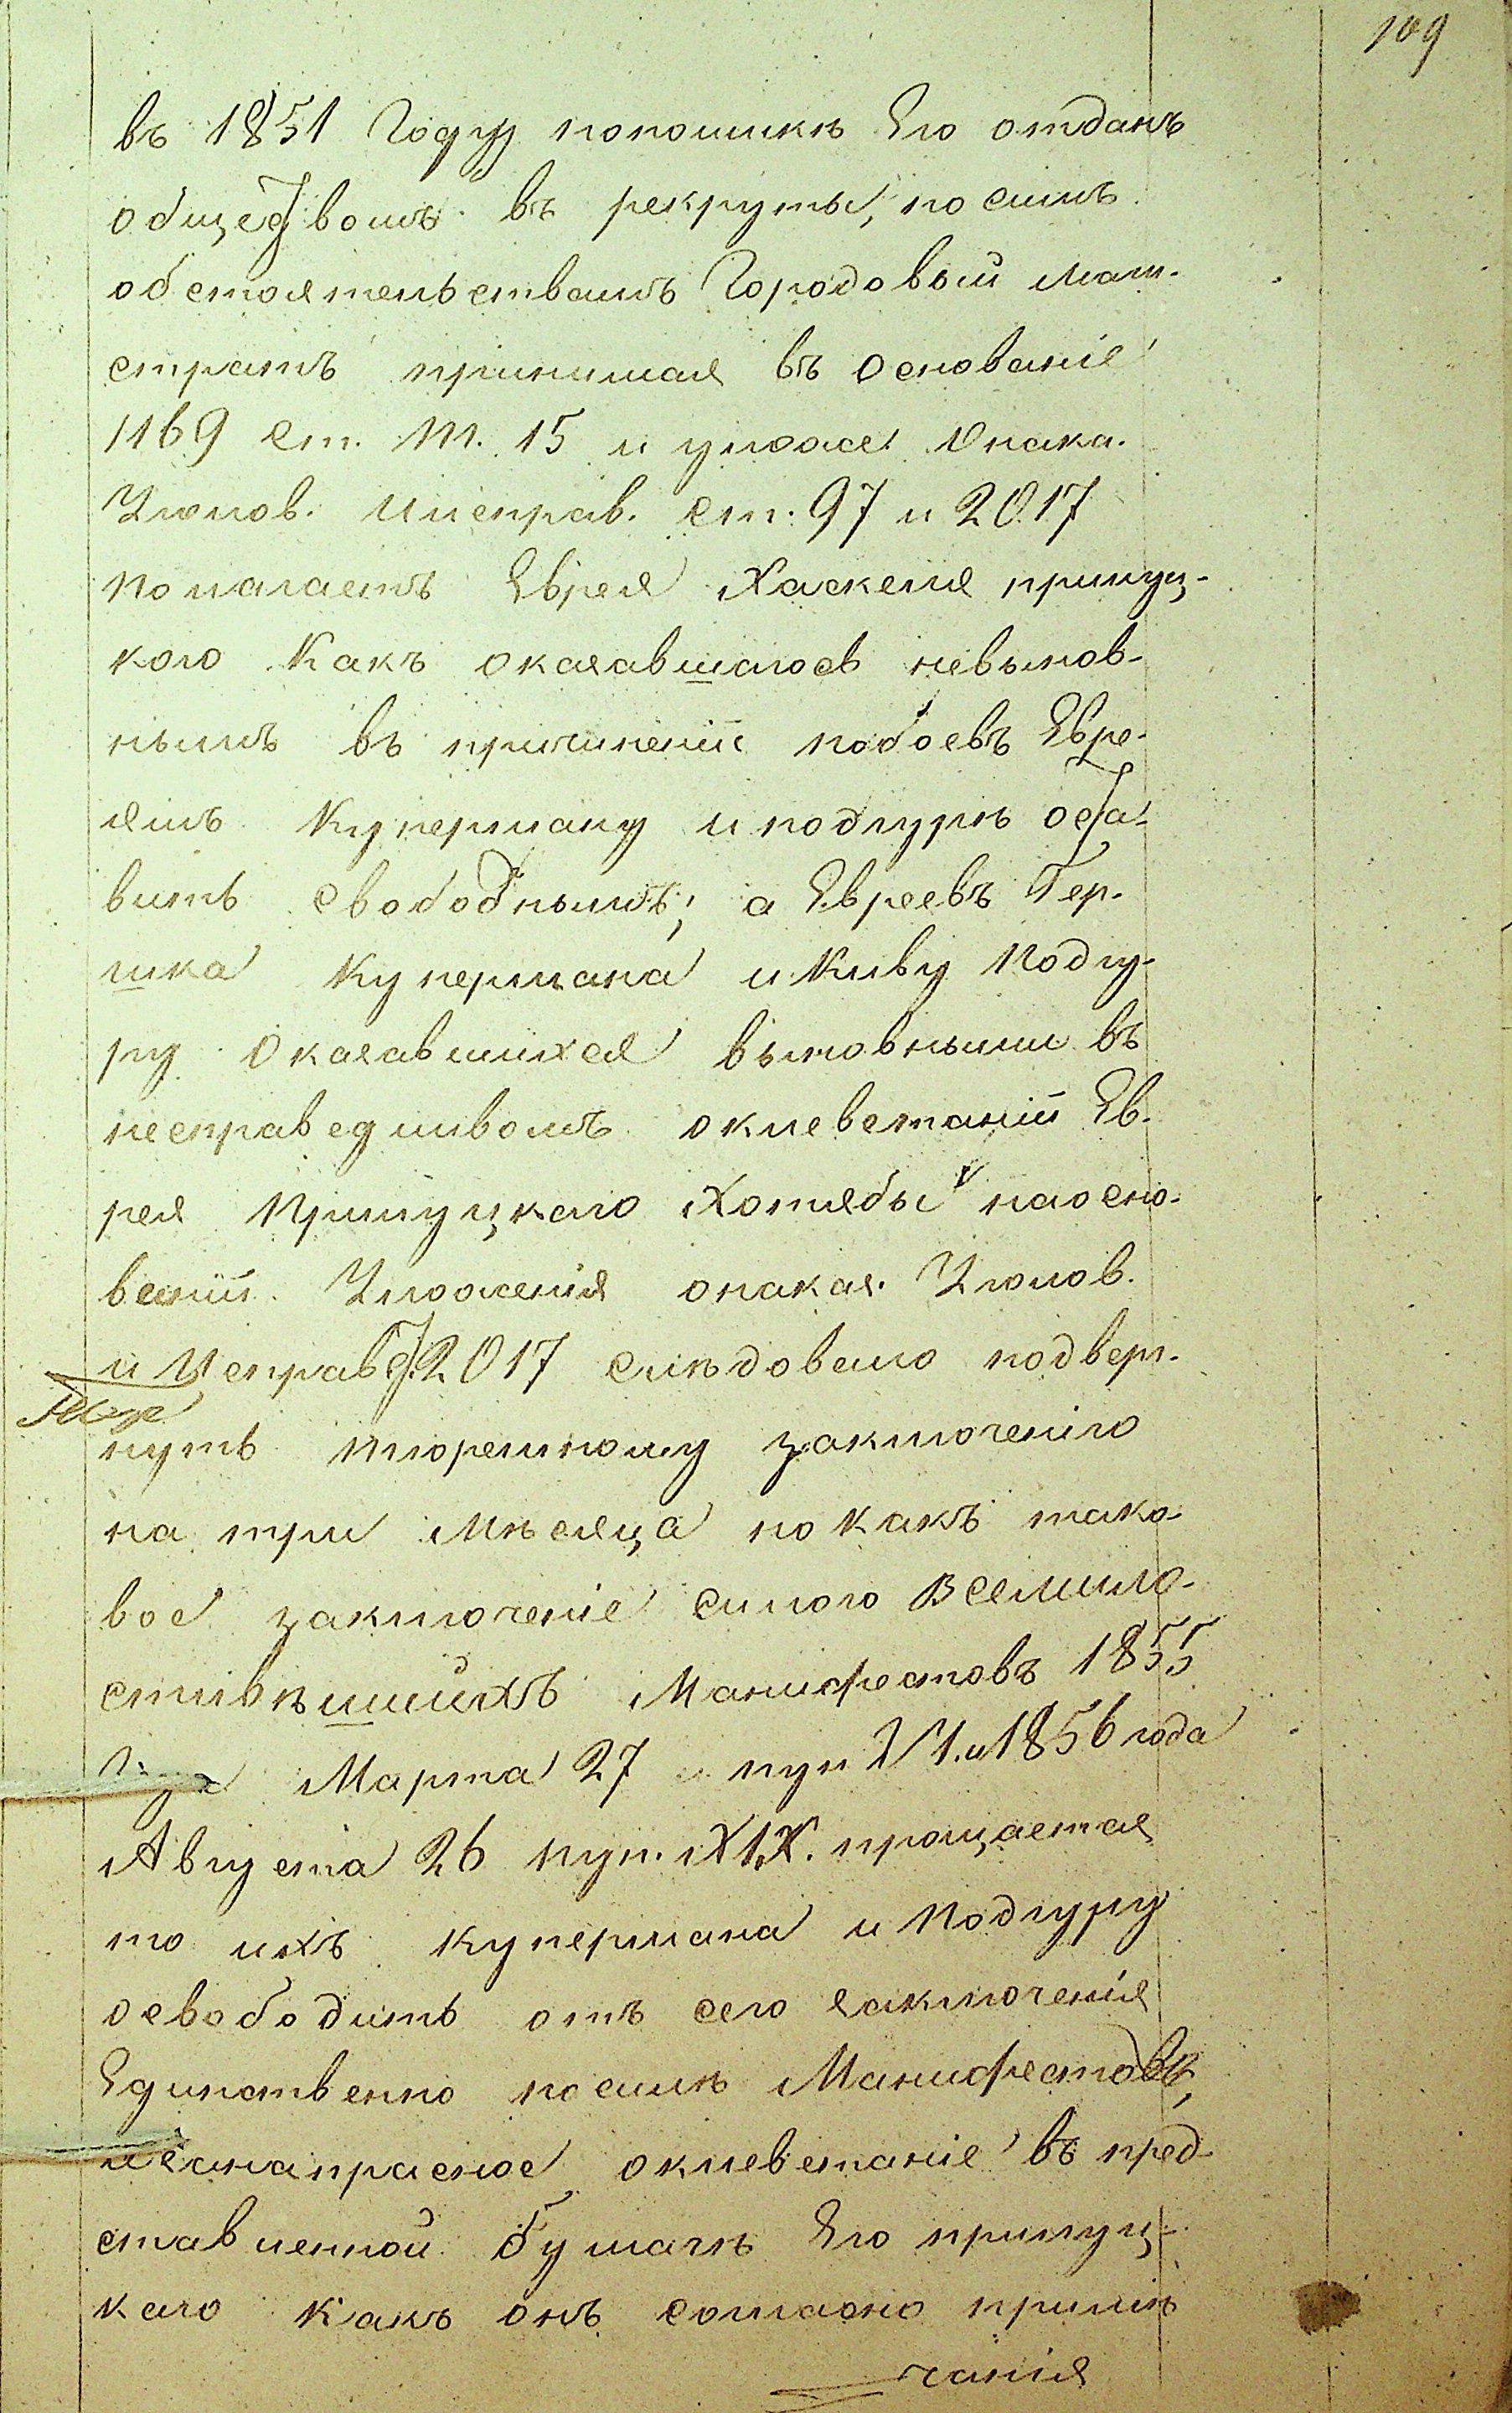 109
въ 1851 Году попоимкѣ Его отданъ
общеструвомъ въ рекруты, по симъ
обстоятельствамъ Городовый Маги-
стратъ принимая въ основаніе
1169 ст. Т. 15 и улож. Онака.
Уголов. Иисправ. ст. 97 и 2017
полагаетъ Еврея Хаскеля прилуц-
кого Какъ оказавшагося невынов-
нымъ въ причиненіи побоевъ Евре-
ямъ Куперману и подгурѣ оста-
вить свободнымъ; а Евреевъ Гер-
шка Купермана и Киву Подгу-
ру Оказавшихся выновными въ
несправедливомъ оклеветаніи Ев-
рея Прилуцкаго Хотябы наосно-
ваніи Уложенія онаказ. Уголов.
и Исправ ст 2017 слѣдовало подверг-
нуть тюремному заключенію
на три Мѣсяца но Какъ тако-
вое заключеніе силою Всемило-
стивѣишихъ Манифестовъ 1855
Марта 27 пун XVI. и 1856 года
Августа 26 пун. XIX. прощается
то ихъ Купермана и Подгуру
освободить отъ сего заключенія
Единственно посилѣ Манифестовъ,
занапрасное оклеветаніе въ пред-
ставленной бумагѣ Его прилуц-
каго Какъ онъ согласно примѣ
чанія